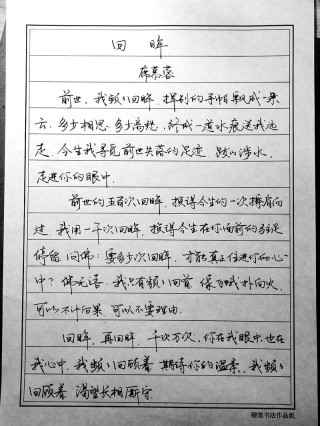 回眸
席慕蓉
前世，我频频回眸，挥别的手帕飘成一朵
云，多少相思，多少离愁，终成一道水痕送我远
走，今生我寻觅前世失落的足迹，跋山涉水，
走进你的眼中.
前世的五百次回眸，换得今生的一次擦肩而
过，我用一千次回眸，换得今生在你面前的驻足
停留，问佛：要多少次回眸，才能真正住进你的心
中？佛无语，我只有频频回首，像飞蛾扑向火，
可以不计后果，可以不要理由.
回眸，再回眸，千次万次，你在我眼中，也在
我心中，我频频回顾着，期待你的温柔，我频频
回顾着，渴望长相厮守.
硬笔书法作品纸